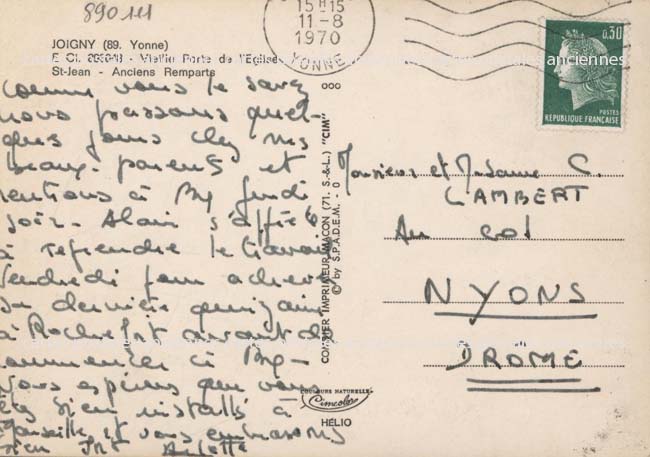 890111
JOIGNY (89. Yonne)
E. Cl. - Vieille Porte de l'Eglise
St-Jean - Anciens Remparts
comme vous le savez
nous passons quel-
ques jours chez mes
beaux-parents et
à Bry
soir. Alain s'apprête
à reprendre le travail
vendredi pour achever
sa dernière quinzaine
à Rochefort avant de
commencer à Bry-
Nous espérons que vous
êtes bien installés à
Marseille et vous embrassons
bien fort Arlette
15H15
11-8
1970
YONNE
0,30
POSTES
REPUBLIQUE FRANÇAISE
anciennes
COMBIER IMPRIMEUR MACON (71. S.-&-L.) "CIM"
© by S.P.A.D.E.M. - 0
Monsieur et Madame C.
LAMBERT
Au col
NYONS
DROME
COULEURS NATURELLES
Cimcolor
HÉLIO